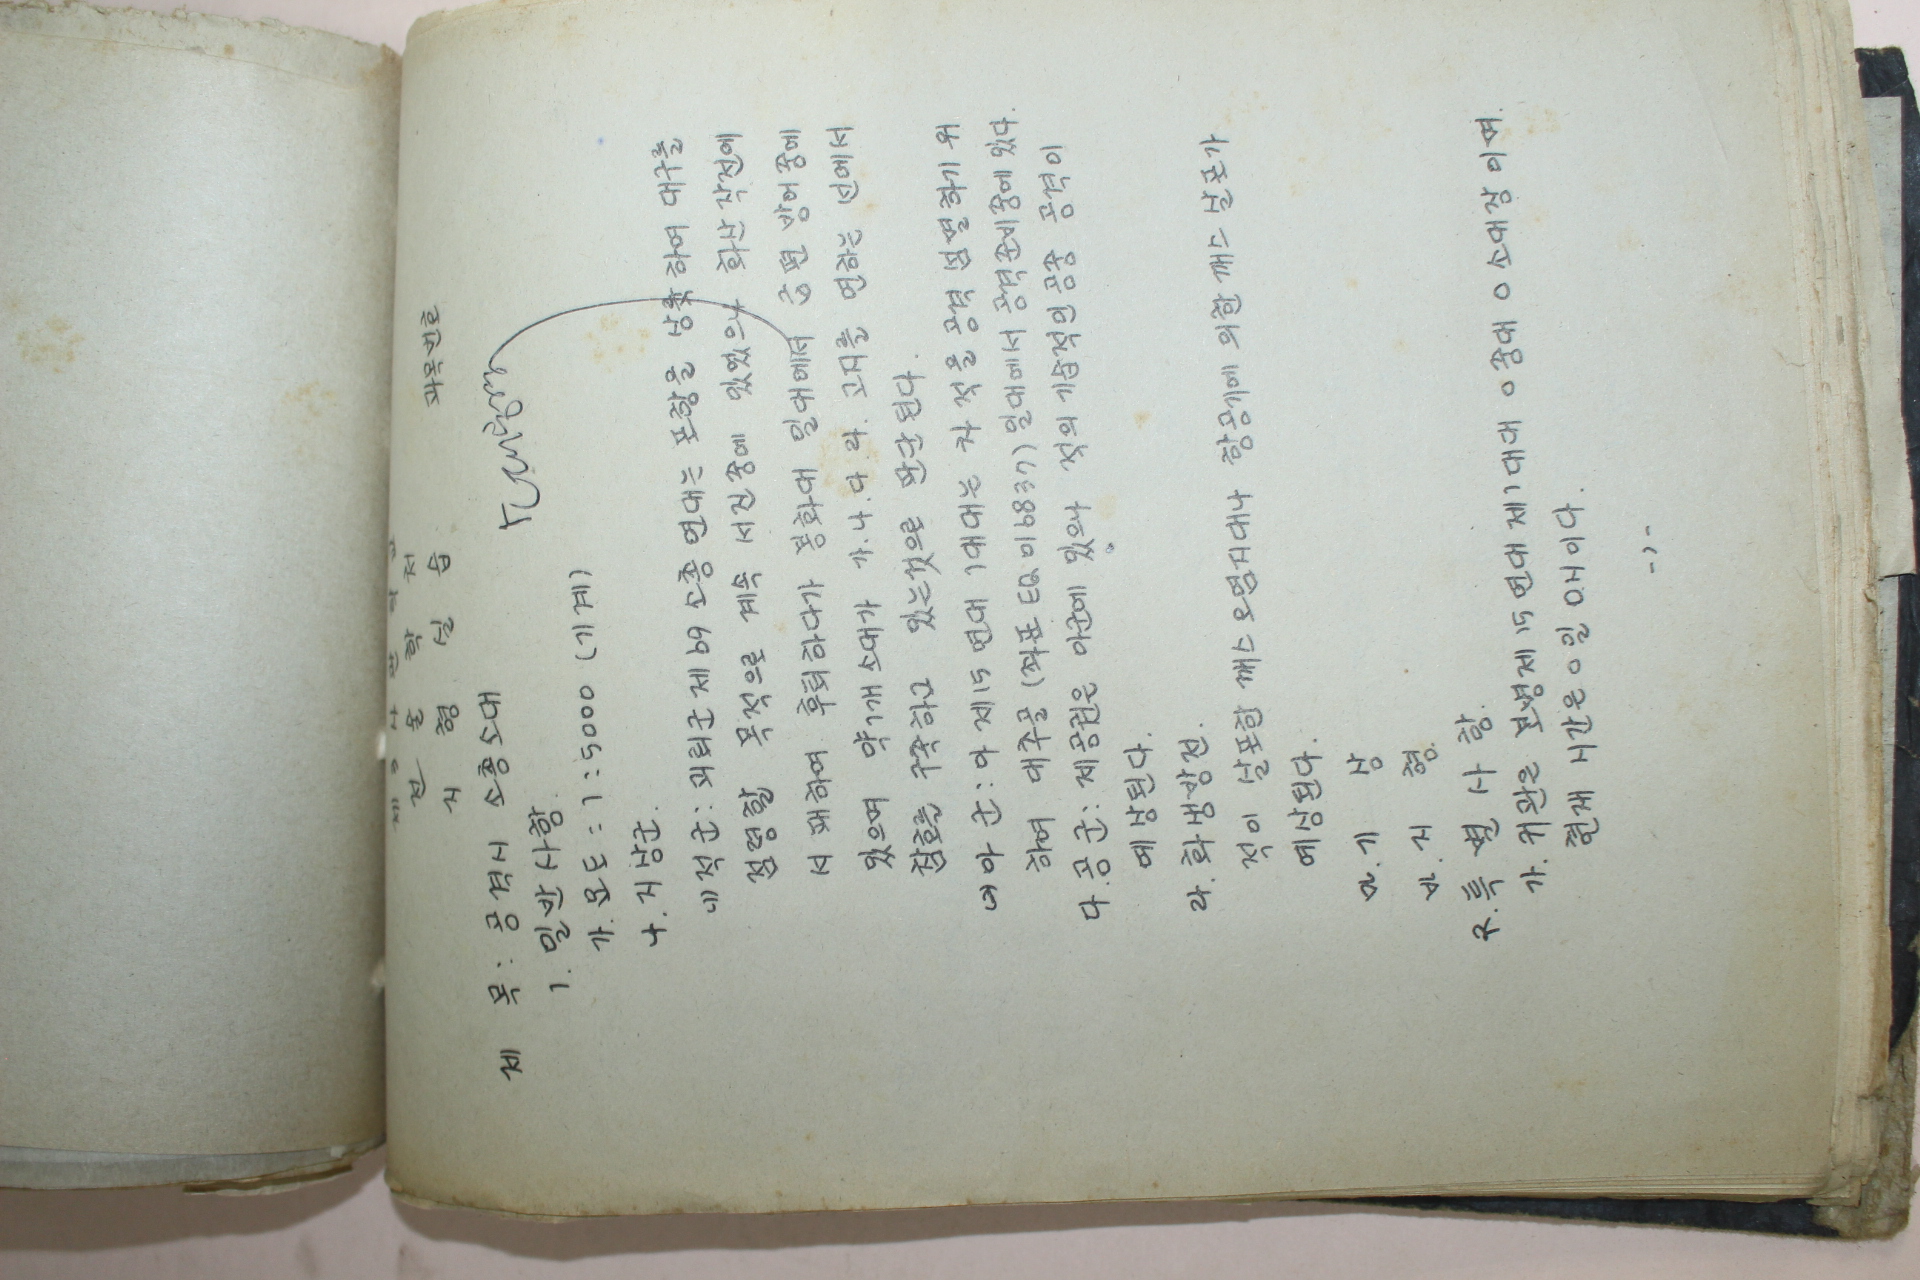 과목번호
지 형 실 습
제 목 : 공격시 소총소대
1. 일반사항.
가. 요도 : 1 : 5000 (기계)
나. 지상군.
적군 : 괴뢰군 제69 소총 연대는 포항을 상륙하여 대구를
점령할 목적으로 계속 서진중에 있었으나 화산 작전에
서 패하여 후퇴하다가 봉화대 일대에서 급편 방어중에
있으며 약1개소대가 가.나.다.라. 고지를 연하는 선에서
참호를 구축하고 있는것으로 판단된다.
아군 : 아 제15연대 1대대는 차 적을 공격 섬멸하기 위
하여 대주골 (좌표 EQ 016837) 일대에서 공격준비중에 있다.
다. 공군 : 제공권은 아군에 있으나 적의 기습적인 공중 공격이
예상된다.
라. 화생방전.
적이 살포할 깨스 오염지대나 항공기에 의한 깨스 살포가
예상된다.
마. 기 상
바. 지 형.
2. 특별사항.
가. 귀관은 보병제15연대 제1대대 0중대 0소대장이며
현재 시간은 0일 0시이다.
-1-